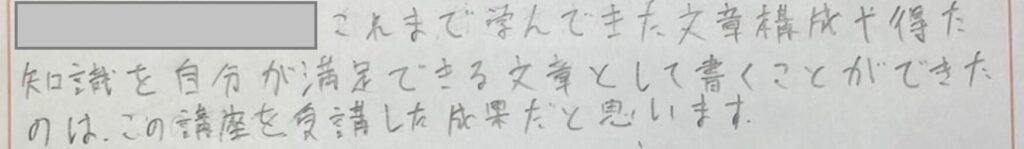 これまで学んできた文章構成や得た
知識を自分が満足できる文章として書くことができた
のは、この講座を受講した成果だと思います。